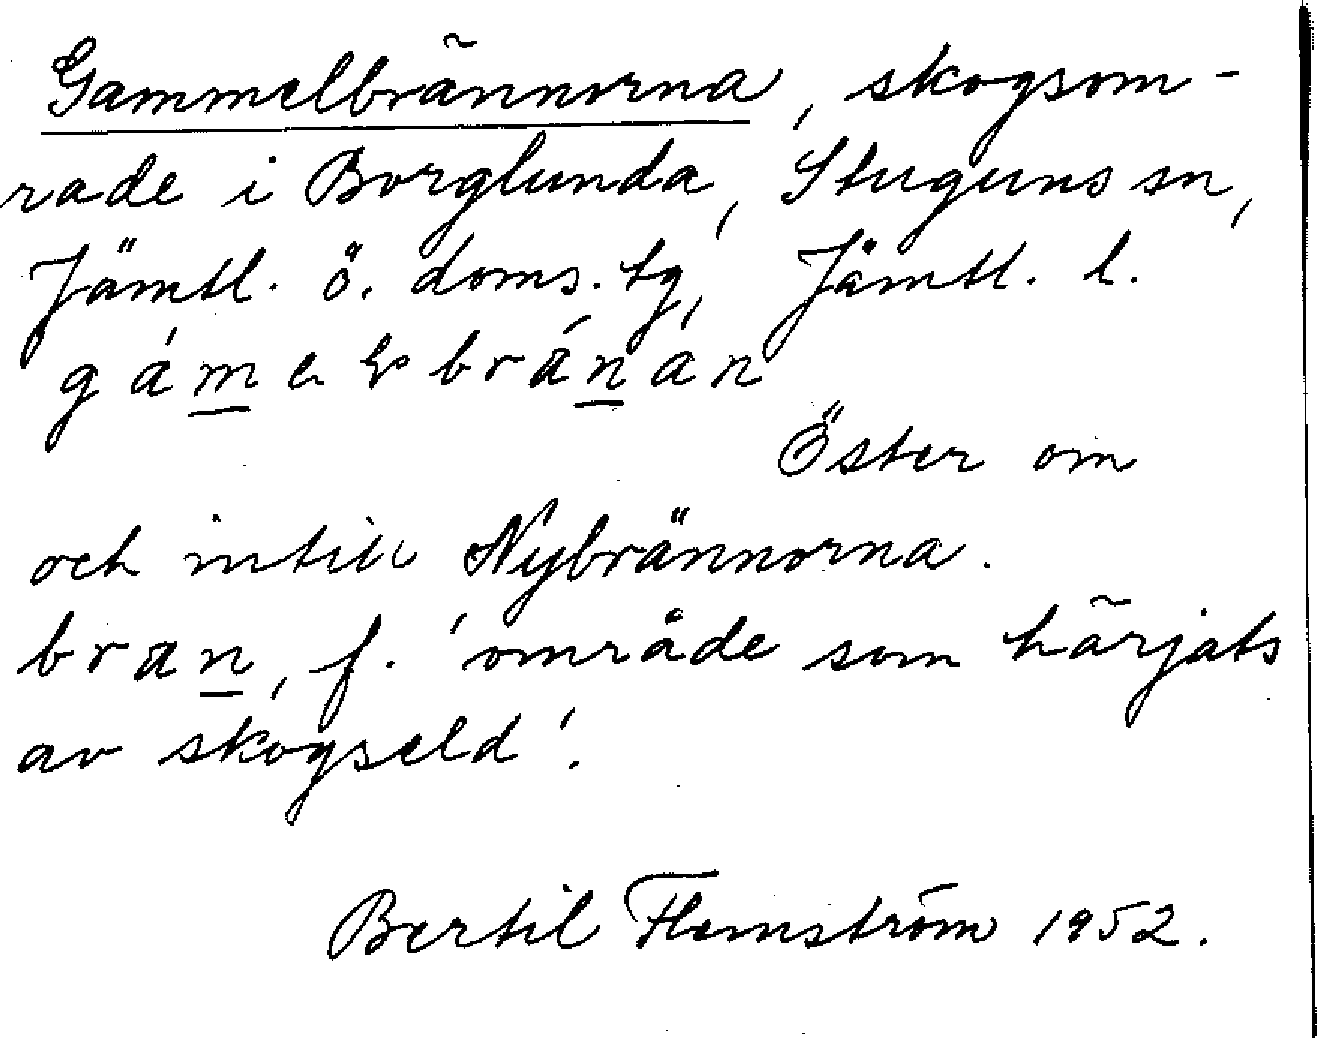 Gammelbrännorna, skogsom-
rade i Borglunda, Stuguns sn,
Jämtl. ö. doms. tg, Jämtl. l.
bránàn
Öster om
och intill Nybrännorna.
bran, f. 'område som härjats
av skogseld'.
Bertil Flemström 1952.